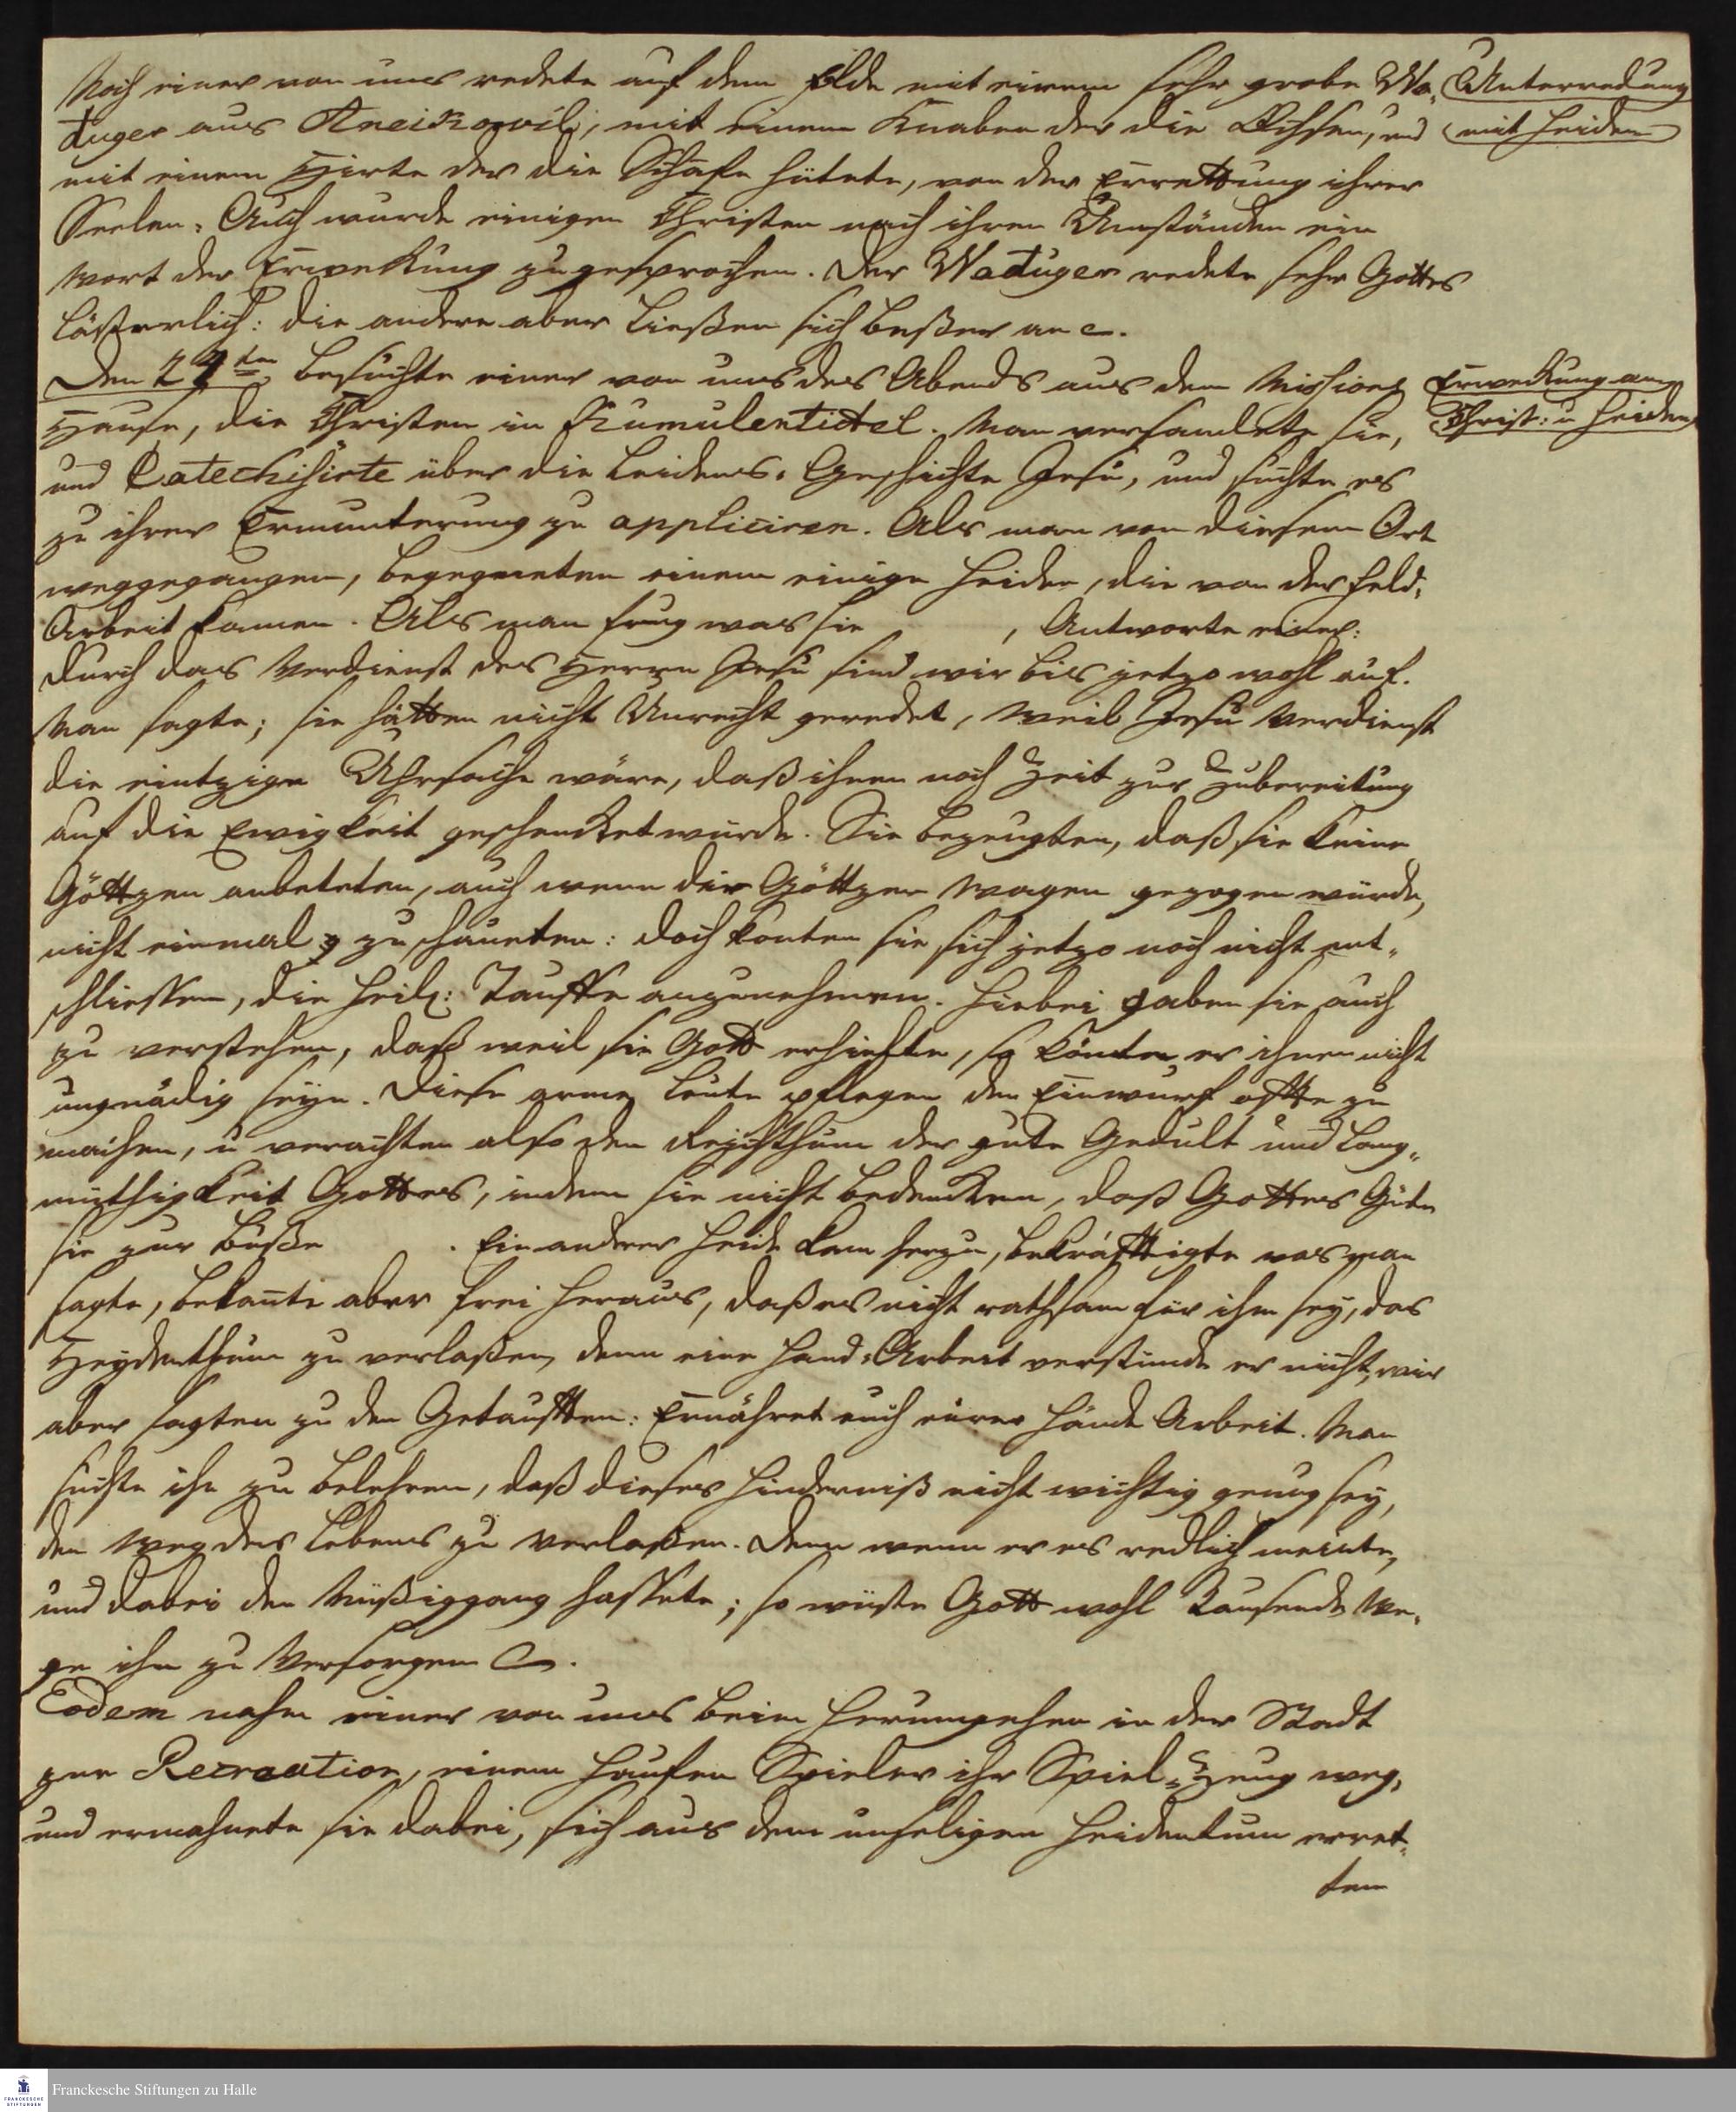 Noch einer von uns redete auf dem Felde mit einem sehr grobe Wa-
duger aus Aneikowil, mit einem Knaben der die Ochsen, und
mit einem Hirte der die Schafe hütete, von der Errettung ihrer
Seelen. Auch wurde einigen Christen nach ihren Umständen ein
Wort der Erweckung zugesprochen. Der Waduger redete sehr Gottes
lästerlich: die andere aber ließen sich beßer an
Unterredung
mit Heiden
Den 24ten besuchte einer von uns des Abends aus dem Missions
Hause, die Christen in Kumulentidel. Man versamlete sie,
und Catechisirte über die Leidens-Geschichte Jesu, und suchte es
zu ihrer Ermunterung zu appliciren. Als man von diesem Ort
weggegangen, begegneten einem einige Heiden, die von der Feld-
Arbeit kamen. Als man frug was sie , Antworte einer:
Durch das Verdienst des Herrn Jesu sind wir bis jetzo wohl auf.
Man sagte; sie hätten nicht Unrecht geredet, weil Jesu Verdienst
die eintzige Uhrsache wäre, daß ihnen noch Zeit zur Zubereitung
auf die Ewigkeit geschencket wurde. Sie bezeugten, daß sie keine
Göttzen anbeteten, auch wenn der Göttzen Wagen gezogen würde,
nicht einmal zu schaueten: doch konten sie sich jetzo noch nicht ent-
schliessen, die Heil: Tauffe anzunehmen. Hiebei gaben sie auch
zu verstehen, daß weil sie Gott erhielte, so könte er ihnen nicht
ungnädig seyn. Diese arme Leute pflegen den Einwurf offte zu
machen, u verachten also den Reichthum der gute Gedult und Lang-
müthigkeit Gottes, indem sie nicht bedencken, daß Gottes Güte
sie zur Buße . Ein anderer Heide kam herzu, bekräfftigte was man
sagte, bekañte aber frei heraus, daß es nicht rathsam für ihm sey, das
Heydenthum zu verlaßen, denn eine Hand-Arbeit verstünde er nicht, wir
aber sagten zu den Getaufften: Ernähret euch eurer Hände Arbeit. Man
suchte ihn zu belehren, daß dieses Hinderniß nicht wichtig genug sey,
den Weg des Lebens zu verlaßen. Denn wenn er es redlich meinte,
und dabei den Müßiggang hassete; so wüste Gott wohl Tausende We-
ge ihn zu Versorgen
Erweckung an
Christ: u Heiden
Eodem nahm einer von uns beim Herumgehen in der Stadt
zur Recreation, einem Haufen Spieler ihr Spiel-Zeug weg,
und ermahnete sie dabei, sich aus dem unseligen Heidentum erret-
ten
Franckesche Stiftungen zu Halle
FRANCKESCHE
STIFTUNGEN